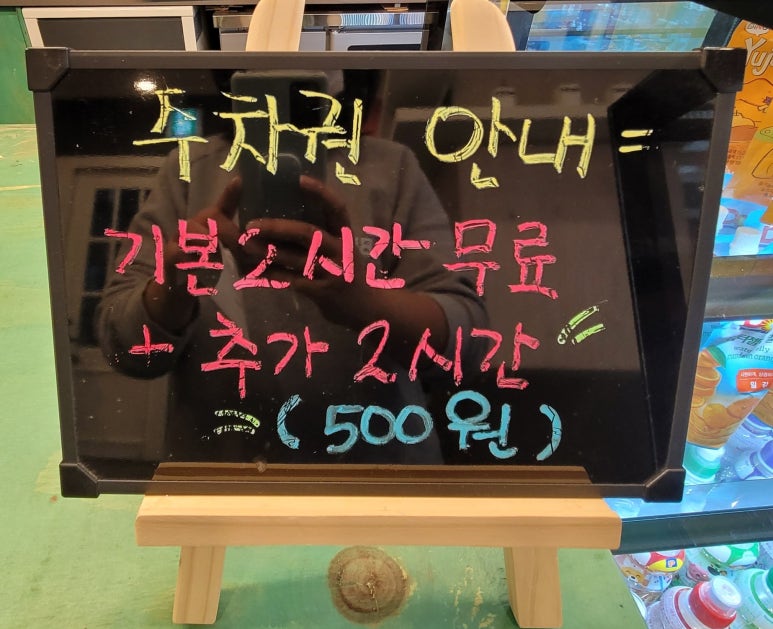 주차권 안내 =
기본 2시간 무료
+ 추가 2시간
(500원)